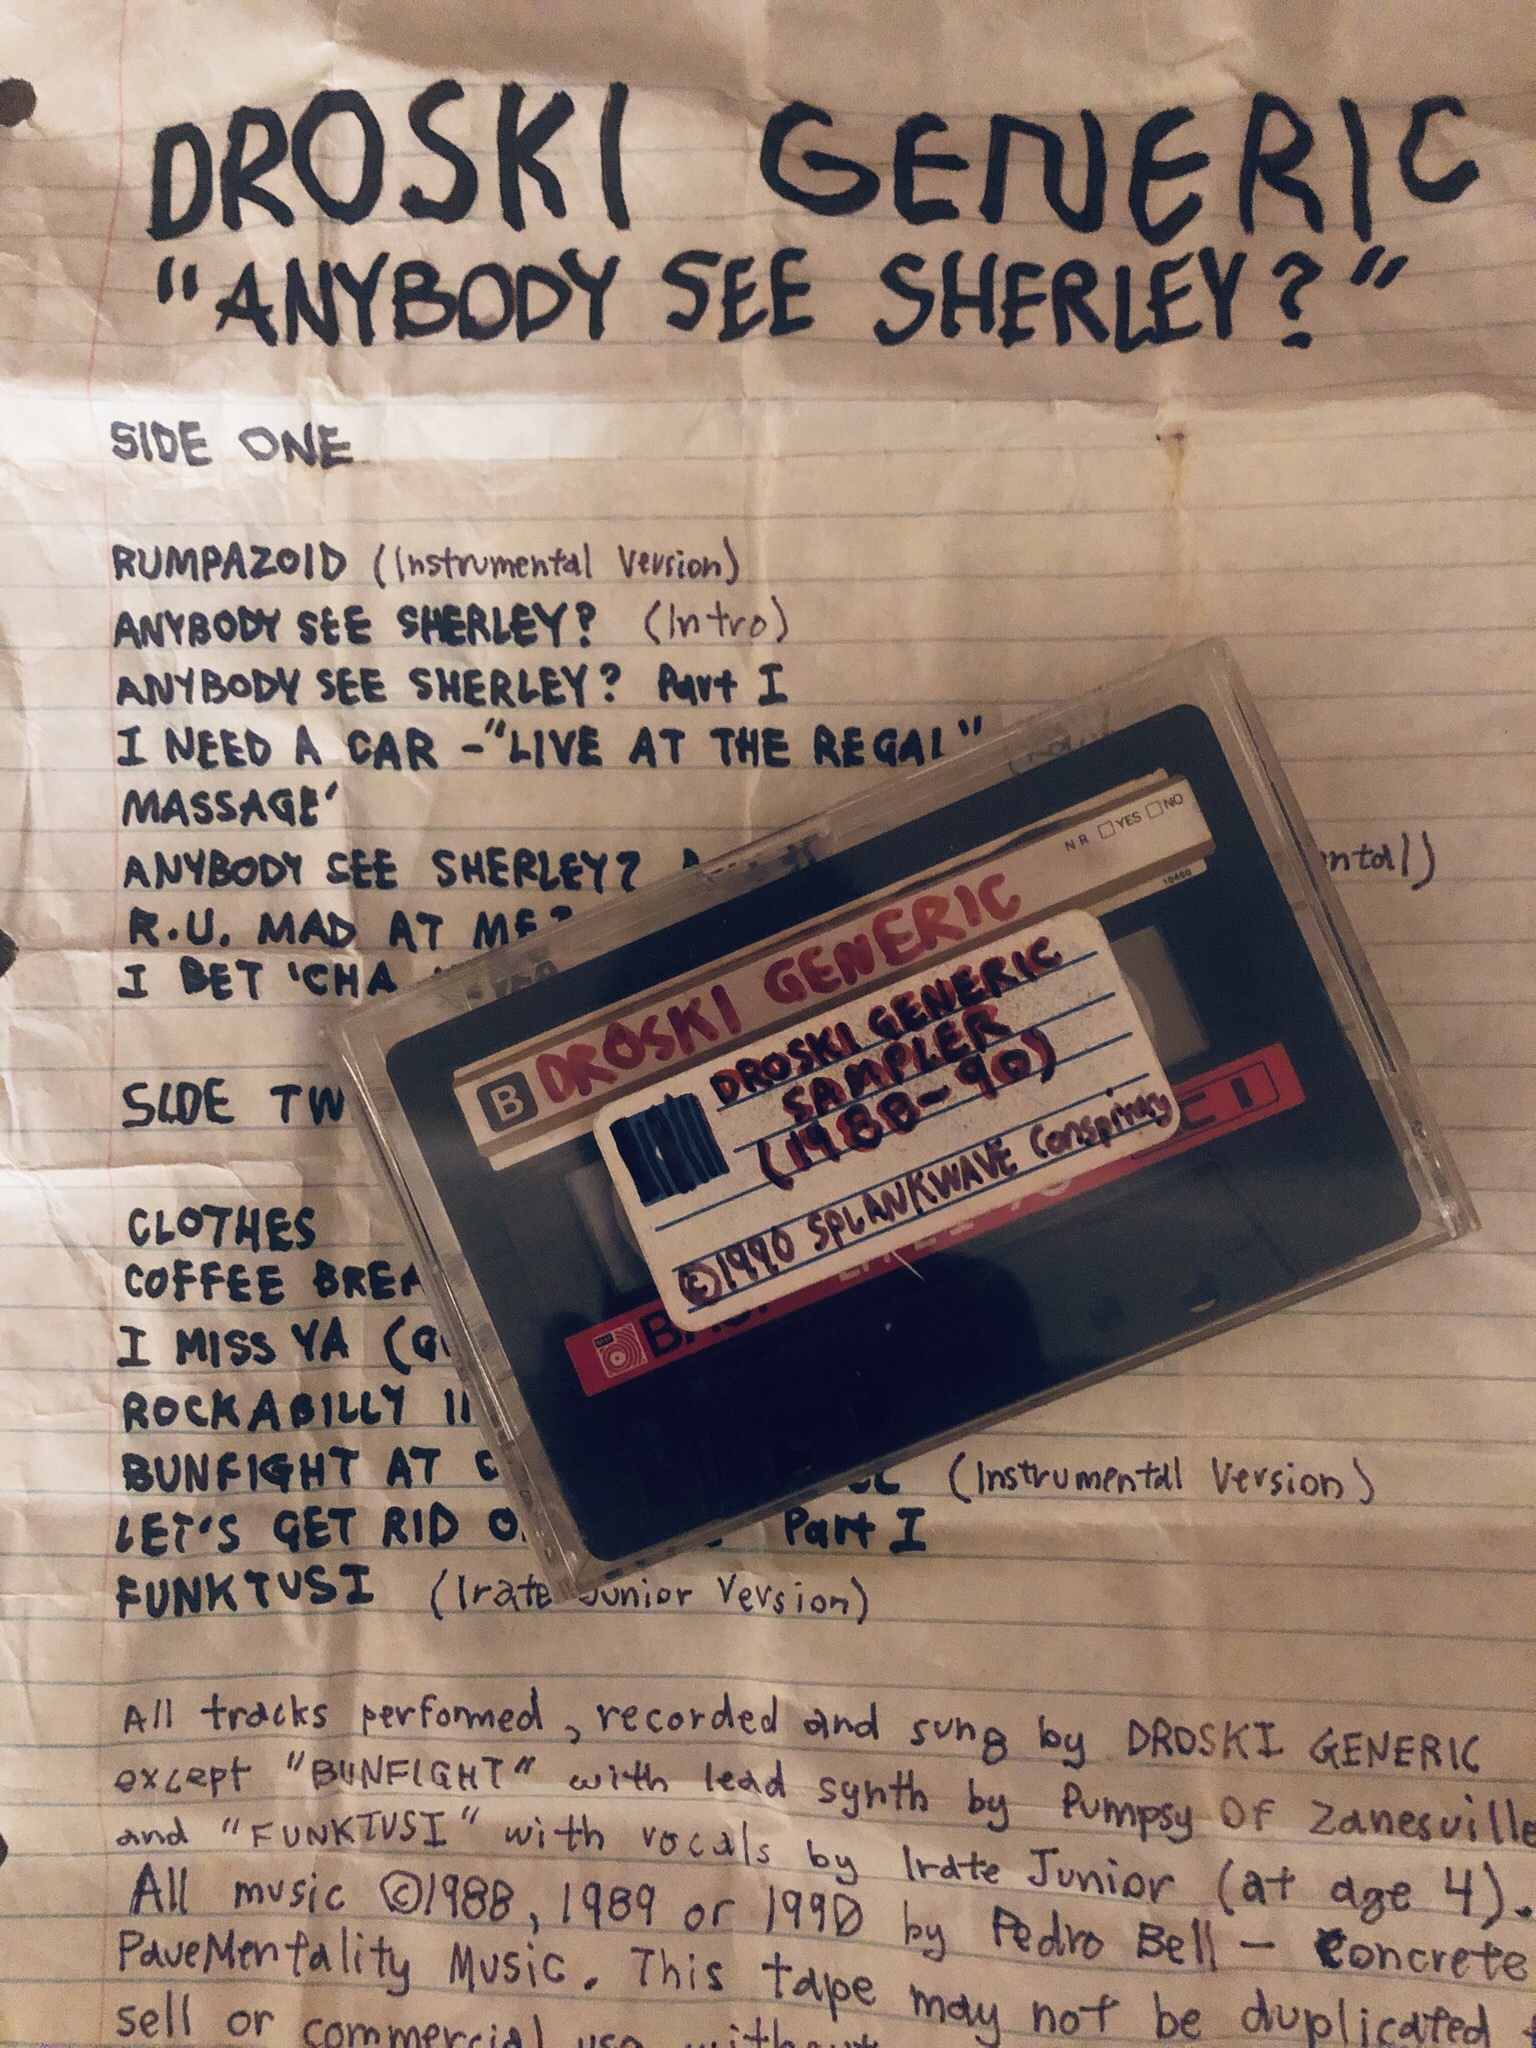 DROSKI GENERIC
"ANYBODY SEE SHERLEY?"
SIDE ONE
RUMPAZOID (Instrumental Version)
ANYBODY SEE SHERLEY? (Intro)
ANYBODY SEE SHERLEY? Part I
I NEED A CAR -"LIVE AT THE REGAL"
MASSAGE'
ANYBODY SEE SHERLEY?
R.U. MAD AT ME?
I BET 'CHA
SIDE TW
CLOTHES
COFFEE BREA
I MISS YA (G
ROCKABILLY
BUNFIGHT AT (Instrumental Version)
LET'S GET RID Part I
FUNKTUSI (Irate Junior Version)
All tracks performed, recorded and sung by DROSKI GENERIC
except "BUNFIGHT" with lead synth by Pumpsy Of Zanesville
and "FUNKTUSI" with vocals by Irate Junior (at age 4).
All music ©1988, 1989 or 1990 by Pedro Bell - Concrete
PaveMentality Music. This tape may not be duplicated
sell or commercial use without
N R YES NO
10400
B DROSKI GENERIC
DROSKI GENERIC
SAMPLER
(1988-90)
©1990 SPLANKWAVE Conspiracy
BASF